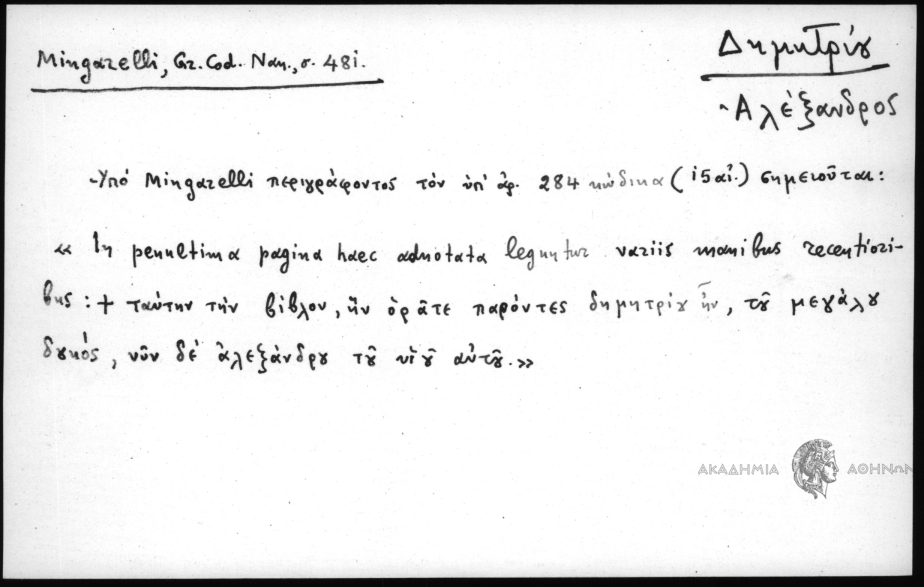 Mingarelli, Gr. Cod. Nan., σ. 481.
Δημητρίου
-Ἀλέξανδρος
-Ὑπό Mingarelli περιγράφοντος τόν ὑπ' ἀρ. 284 κώδικα (15 αἰ.) σημειοῦται:
« In penultima pagina haec adnotata leguntur variis manibus recentiori-
bus: + ταύτην τήν βίβλον, ἥν ὁρᾶτε παρόντες δημητρίου ἦν, τοῦ μεγάλου
δουκός, νῦν δέ ἀλεξάνδρου τοῦ υἱοῦ αὐτοῦ.»
ΑΚΑΔΗΜΙΑ ΑΘΗΝΩΝ